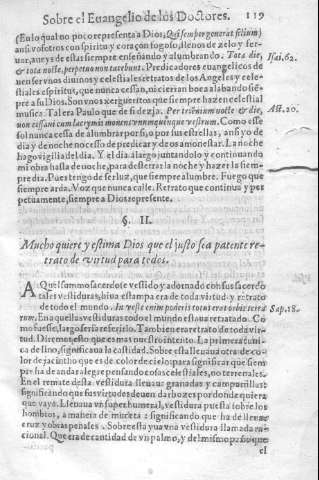 Sobre el Euangelio de los Doctores. 119
(En lo qual no poco representa a Dios, Qui semper generat filium)
ansi vosotros con spiritu y coraçon fogoso, llenos de zelo y fer-
uor, aueys de estar siempre enseñando y alumbrando. Tota die, Isai. 62.
& tota nocte, perpetuo non tacebunt. Predicadores euangelicos de
uen ser vnos diuinos y celestiales retratos de los Angeles y cele-
stiales espiritus, que nunca cessan, ni cierran boca alabando siem
pre a su Dios. Son vnos xergueritos que siempre hazen celestial
musica. Talera Paulo que de si dezia. Per triennium nocte & die, Act. 20.
non cessaui cum lacrymis monens vnumquemque vestrum. Como esse
sol nunca cessa de alumbrar por si, o por sus estrellas, ansi yo de
dia y de noche no cesso de predicar y de os amonestar. La noche
hago vigilia del dia. Y el dia alargo juntandolo y continuando
mi obra hasta de noche, para desterrar la noche y hazerla siem-
pre dia. Pues tengo de ser luz, que siempre alumbre. Fuego que
siempre arda. Voz que nunca calle. Retrato que continua y per
petuamente, siempre a Dios represente.
§. II.
Mucho quiere y estima Dios que el justo sea patente re-
trato de virtud para todos.
A Quel summo sacerdote vestido y adornado con sus sacerdo
tales vestiduras, biua estampa era de toda virtud y retrato
de todo el mundo. In veste enim poderis totus erat orbis terra- Sap. 18.
rum. En aquellas vestiduras todo el mundo estaua retratado. Co
mo fuesse, largo seria referirlo. Tambien era retrato de toda vir-
tud. Diremos esto que es mas nuestro intento. La primera tunica
de lino, significaua la castidad. Sobre esta lleuaua otra de co-
lor de jacintho que es de color de cielo: para significar que siem
pre ha de andar alegre pensando cosas celestiales, no terrenales.
En el remate desta vestidura lleuaua granadas y campanillas:
significando que sus virtudes deuen dar bozes por donde quiera
que vaya. Lleuaua vn superhumeral, vestidura puesta sobre los
hombros, a manera de muceta: significando que ha de lleuar
cruz y obras penales. Sobre esta yua vna vestidura llamada ra-
cional. Que era de cantidad de vn palmo, y del mismo paño que
el